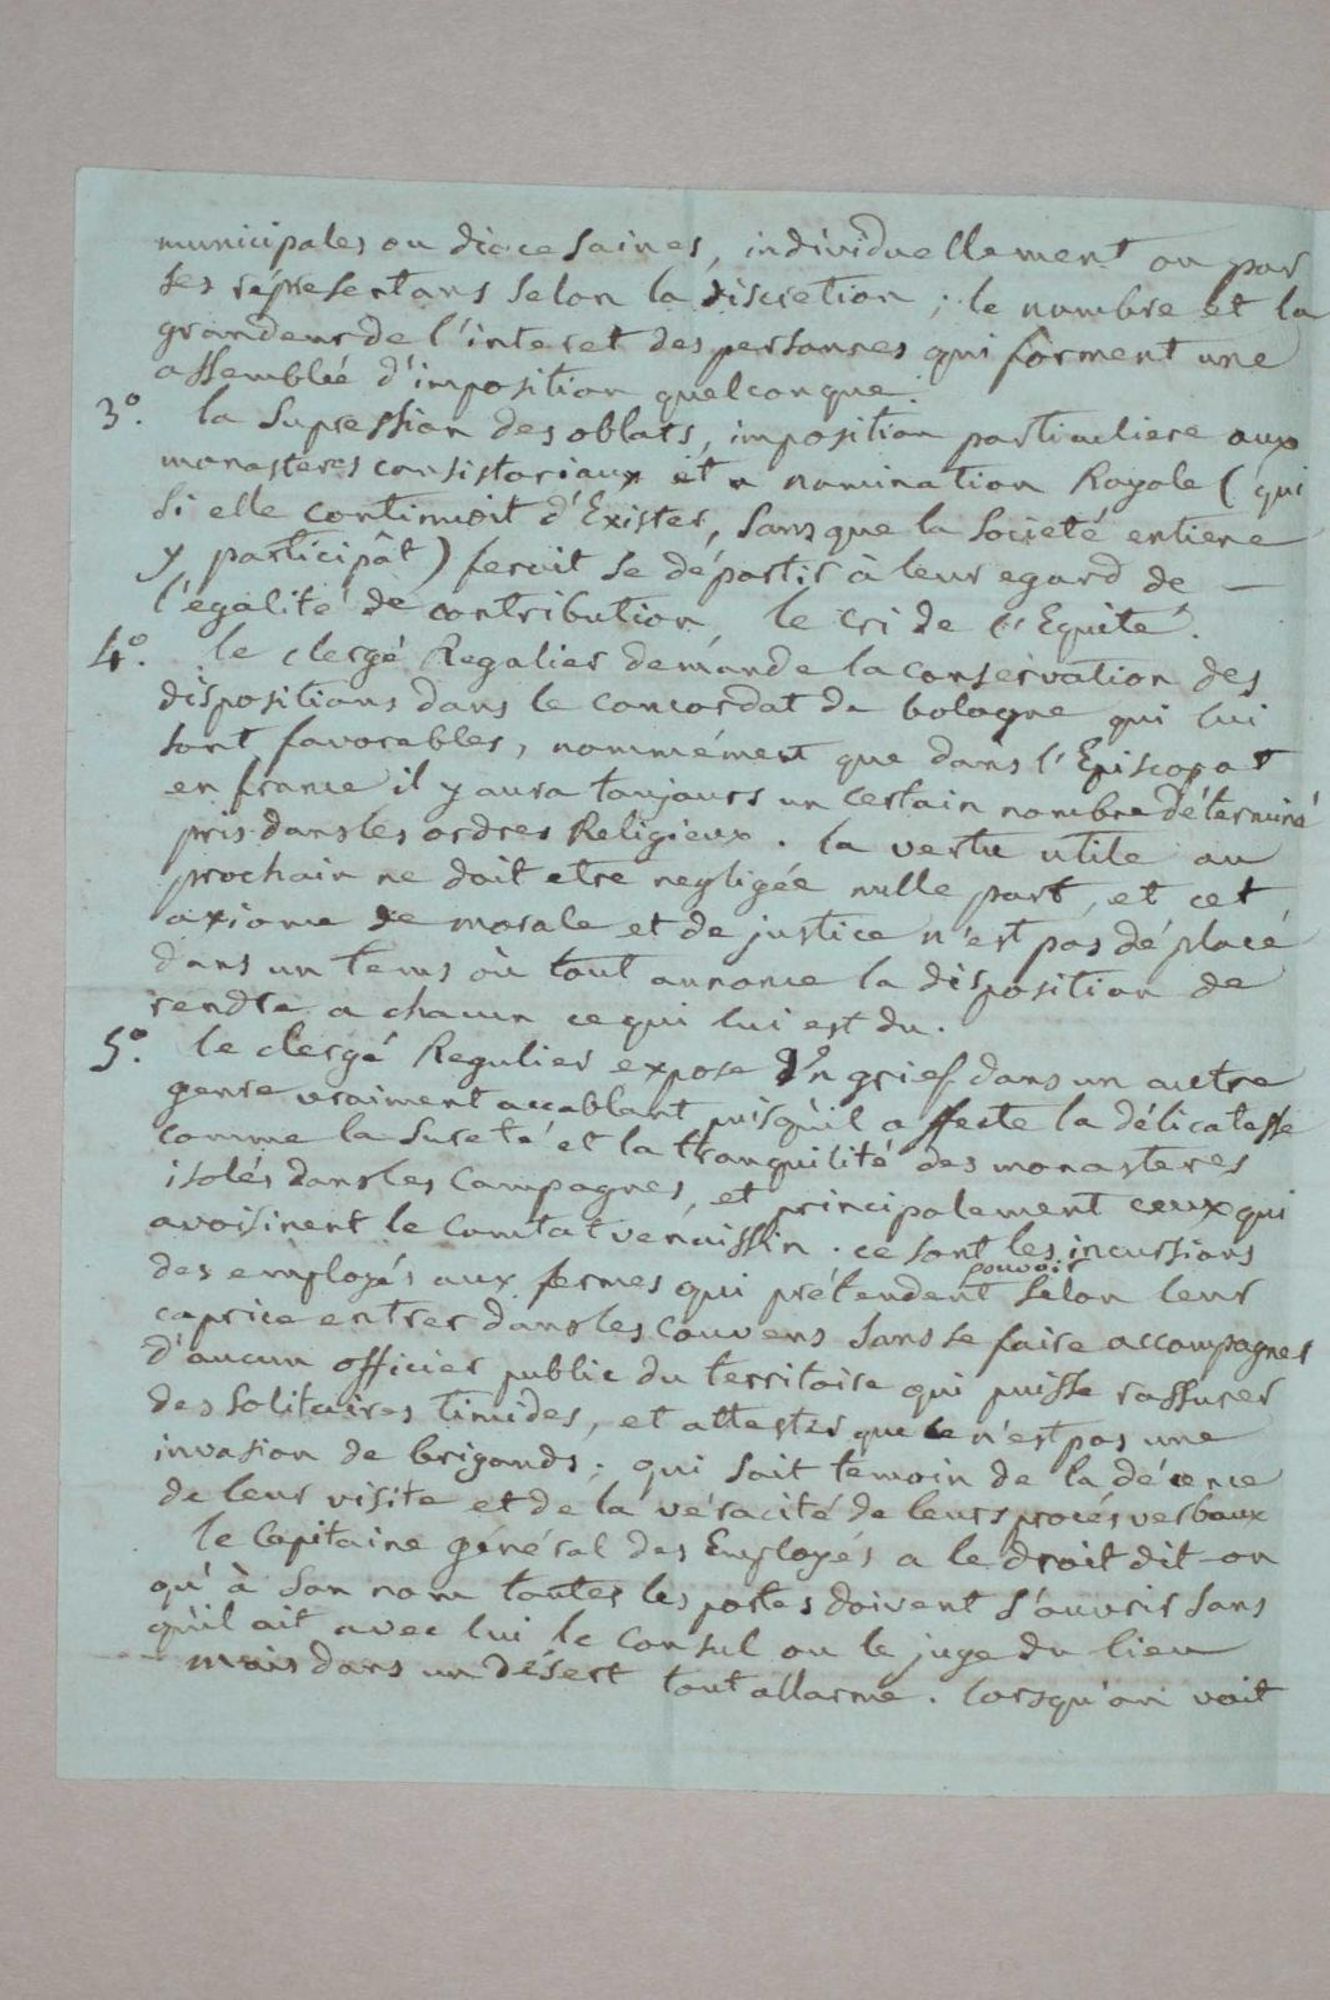 municipales ou diocesaines, individuellement ou par
ses répresentans selon la discretion ; le nombre et la
grandeur de l'interet des personnes qui forment une
assemblée d'imposition quelconque.
3°. la Supression des oblats, imposition particuliere aux
monasteres consistoriaux et a nomination Royale ( qui
si elle continuoit d'Exister, sans que la Societé entiere
y participât ) feroit se départir à leur egard de —
l'égalité de contribution, le cri de l'Equité.
4°. le clergé Regulier demande la conservation des
dispositions dans le concordat de bologne qui lui
sont favorables, nommément que dans l'Episcopat
en france il y aura toujours un certain nombre déterminé
pris dans les ordres Religieux. la vertu utile au
prochain ne doit etre negligée nulle part, et cet
axiome de morale et de justice n'est pas déplacé
dans un tems où tout annonce la disposition de
rendre a chacun ce qui lui est du.
5°. le clergé Regulier expose Un grief dans un autre
genre vraiment accablant puisqu'il affecte la délicatesse
comme la sureté et la tranquilité des monasteres
isolés dans les Campagnes, et principalement ceux qui
avoisinent le Comtat venaissin. ce sont les incursions
des employés aux fermes qui prétendent pouvoir selon leur
caprice entrer dans les couvens sans se faire accompagner
d'aucun officier public du territoire qui puisse rassurer
des solitaires timides, et attester que ce n'est pas une
invasion de brigands ; qui soit témoin de la décence
de leur visite et de la véracité de leurs procés verbaux
le Capitaine général des Employés a le droit dit-on
qu'à son nom toutes les portes doivent s'ouvrir sans
qu'il ait avec lui le Consul ou le juge du lieu
mais dans un désert tout allarme. lorsqu'on voit